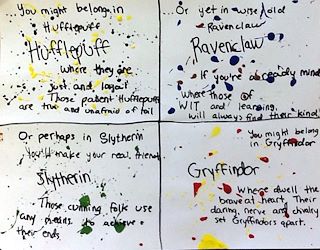 You might belong in
Hufflepuff
Hufflepuff
where they are
just and loyal
Those patient Hufflepuffs
are true and unafraid of toil
Or yet in wise old
Ravenclaw
Ravenclaw
If you're already mind
where those of
WIT and learning,
will always find their kind
Or perhaps in Slytherin
You'll make your real friends
Slytherin
Those cunning folk use
any means to achieve
their ends
You might belong
in Gryffindor
Gryffindor
Where dwell the
brave at heart, Their
daring, nerve and chivalry
set Gryffindors apart.